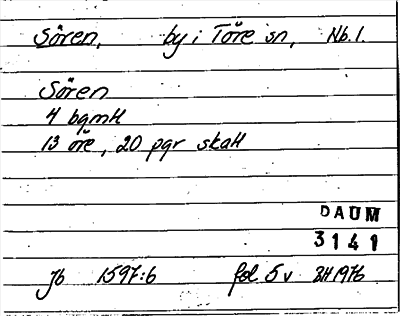 Sören, by i Töre sn, Nb.l.
Sören
4 bgmtl
13 öre, 20 pgr skatt
DAUM
3141
Jb 1597:6 fol 5 v BH 1976